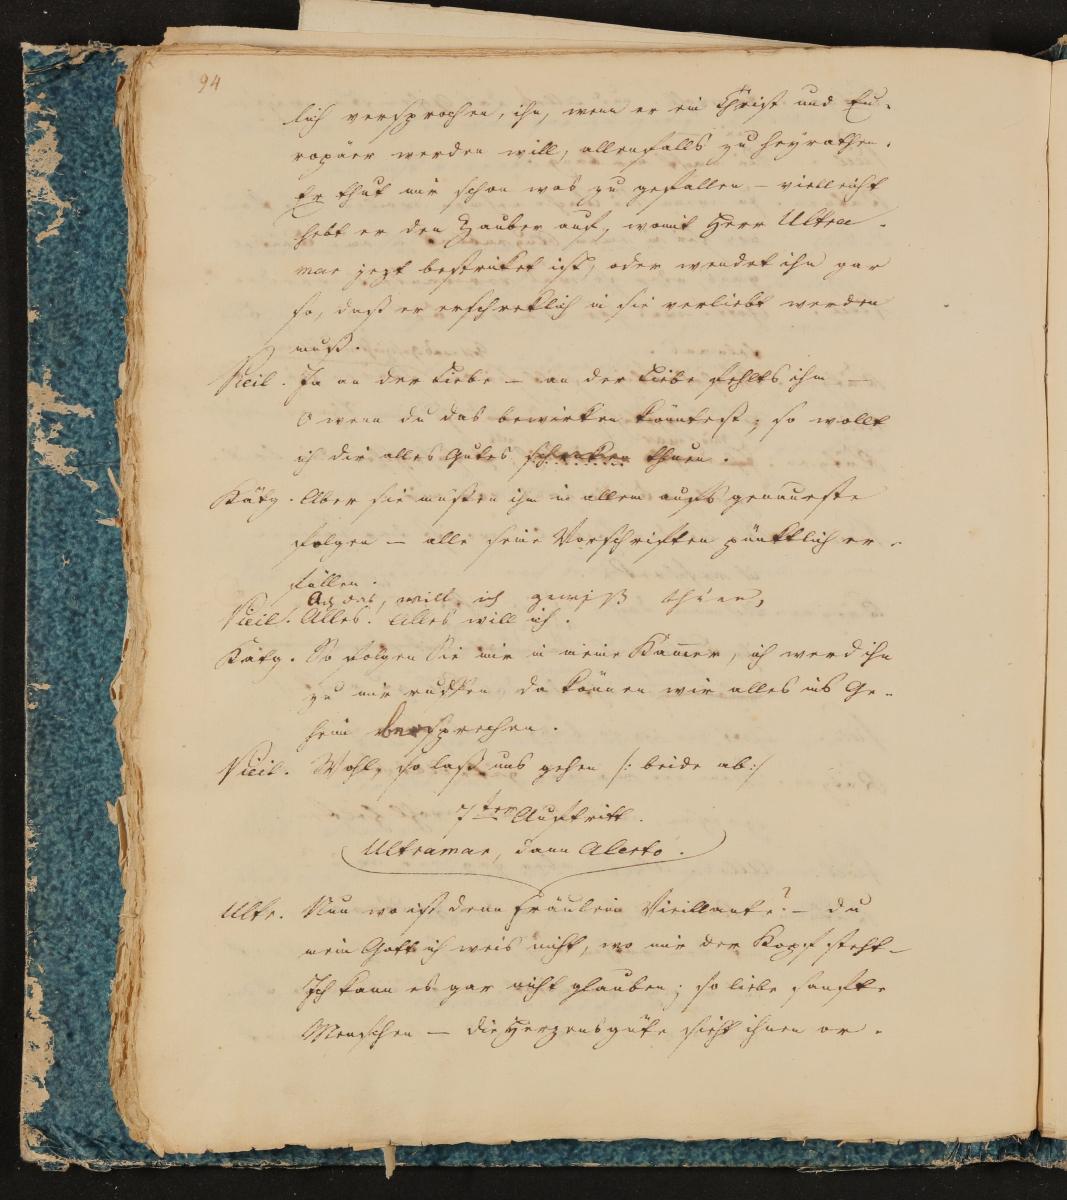 94
lich versprochen, ihn, wenn er ein Christ und Eu-
ropäer werden will, allenfalls zu heyrathen.
Er thut mir schon was zu gefallen – vielleicht
hebt er den Zauber auf, womit Herr Ultra-
mar jezt bestriket ist, oder wendet ihn gar
so, daß er erschreklich in sie verliebt werden
muß.
Vieil. Ja an der Liebe – an der Liebe fehlts ihm –
O wenn du das bewirken könntest; so wollt
ich dir alles Gutes schenken thuen.
Kätg. Aber sie müßen ihm in allem aufs genaueste
folgen – alle seine Vorschriften pünktlich er-
füllen.
das, will ich gewiß thuen,
Vieil. Alles. Alles will ich.
Kätg. So folgen Sie mir in meine Kammer, ich werd ihn
zu mir ruffen da können wir alles ins Ge-
heim besprechen.
Vieil. Wohl, so laß uns gehen /: beide ab :/
7ter Auftritt.
Ultramar, dann Alerto.
Ultr. Nun wo ist denn Fräulein Vieillante? – du
mein Gott ich weis nicht, wo mir der Kopf steht –
Ich kann es gar nicht glauben; so liebe sanfte
Menschen – die Herzensgüte sieht ihnen or-